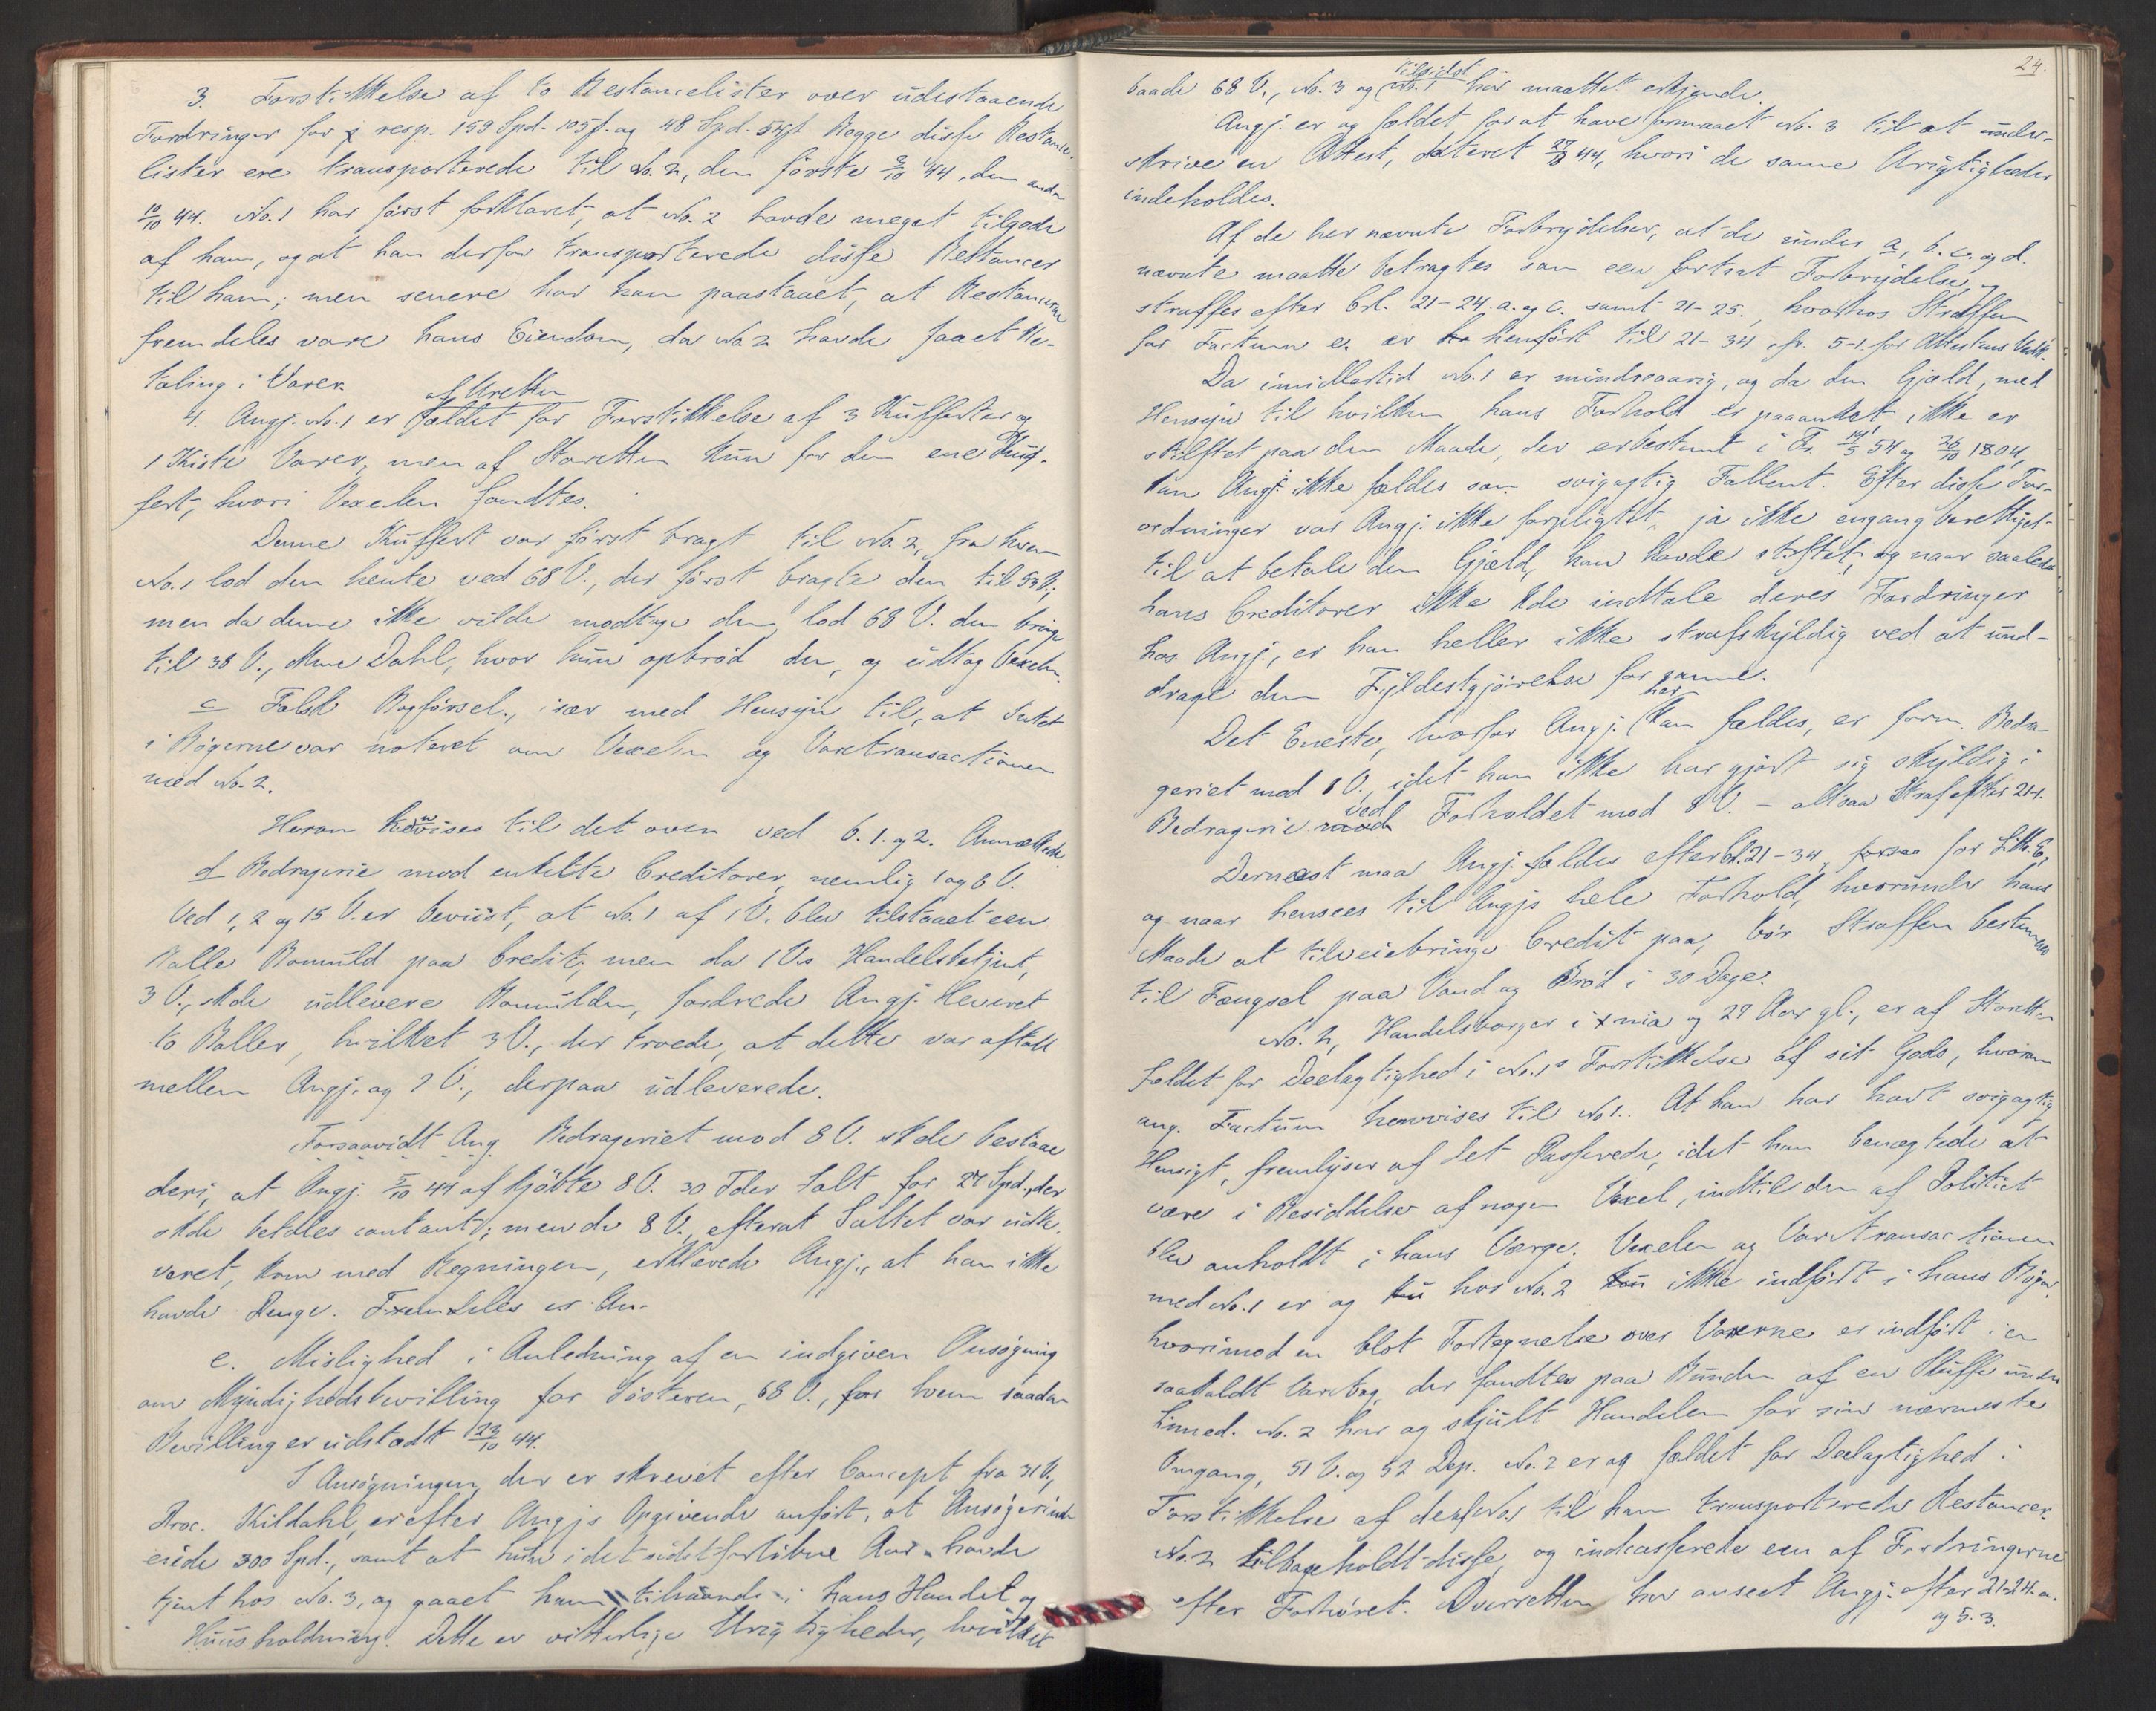 3. Forstikkelse af to Restancelister over udestaaende
Fordringer for resp. 159 Spd. 105 s. og 48 Spd. 54 s. Begge disse Restance-
lister ere transporterede til No. 2, den første 3/10 44, den anden
10/10 44. No. 1 har først forklaret, at No. 2 havde meget tilgode
af ham, og at han derfor transporterede disse Restancer
til ham; men senere har han paastaaet, at Restancerne
fremdeles vare hans Eiendom, da No. 2 havde faaet Be-
taling i Varer.
4. Angj. No. 1 er af Uretten fældet for Forstikkelse af 3 Kufferter og
1 Kiste Varer, men af Storetten kun for den ene Kuf-
fert, hvori Vexelen fandtes.
Denne Kuffert var først bragt til No. 2, fra hvem
No. 1 lod den hente ved 68 V., der først bragte den til 53 V.;
men da denne ikke vilde modtage den, lod 68 V. den bringe
til 38 V., Mme Dahl, hvor hun opbrød den, og udtog Vexelen.
c Falsk Bogførsel, især med Hensyn til, at Intet
i Bøgerne var noteret om Vexelen og Varetransactionen
med No. 2.
Herom henvises til det oven ved b. 1. og 2. Anmærkede.
d Bedragerie mod enkelte Creditorer, nemlig 1 og 8 V.
Ved 1, 2 og 15 V. er beviist, at No. 1 af 1 V. blev tilstaaet een
Balle Bomuld paa Credit; men da 1 V.s Handelsbetjent,
3 V., skde udlevere Bomulden, fordrede Angj. leveret
to Baller, hvilket 3 V., der troede, at dette var aftalt
mellem Angj. og 1 V., derpaa udleverede.
Forsaavidt Ang. Bedrageriet mod 8 V. skde bestaae
deri, at Angj. 5/10 44 af kjøbte 8 V. 30 Tdr Salt for 27 Spd., der
skde betales contant; men da 8 V., efterat Saltet var udle-
veret, kom med Regningen, erklærede Angj., at han ikke
havde Penge. Fremdeles er An-
e. Mislighed i Anledning af en indgiven Ansøgning
om Myndighedsbevilling for Søsteren, 68 V., for hvem saadan
Bevilling er udstædt 23/10 44.
I Ansøgningen, der er skrevet efter Concept fra 31 V.,
Proc. Kildahl, er efter Angjs Opgivende anført, at Ansøgerinden
eiede 300 Spd., samt at hun i det sidst forløbne Aar havde
tjent hos No. 3, og gaaet ham tilhaande i hans Handel og
Huusholdning. Dette er vitterlige Urigtigheder, hvilket
24.
baade 68 V., No. 3 og tilsidst No. 1 har maattet erkjende.
Angj. er og fældet for at have formaaet No. 3 til at under-
skrive en Attest, dateret 44, hvori de samme Urigtigheder
indeholdes.
Af de her nævnte Forbrydelser, at de under a, b. c. og d.
nævnte maatte betragtes som een fortsat Forbrydelse, og
straffes efter Crl. 21-24. a. og c. samt 21-25., hvorhos Straffen
for Factum e. er henført til 21-34 cfr. 5-1 for Attestens Vedk.
Da imidlertid No. 1 er mindreaarig, og da den Gjæld, med
Hensyn til hvilken hans Forhold er paaanket ikke er
stiftet paa den Maade, der er bestemt i Fr. 14/5 54 og 26/10 1804,
kan Angj. ikke fældes som svigagtig Fallent. Efter disse For-
ordninger var Angj. ikke forpligtet, ja ikke engang berettiget
til at betale den Gjæld, han havde stiftet, og naar saaledes
hans Creditorer ikke kde indtale deres Fordringer
hos Angj., er han heller ikke strafskyldig ved at und-
drage dem Fyldestgjørelse for samme.
Det Eneste, hvorfor Angj. her kan fældes, er form. Bedra-
geriet mod 1 V., idet han ikke har gjort sig skyldig i
Bedragerie ved Forholdet mod 8 V. – altsaa Straf efter 21-1.
Dernæst maa Angj. fældes efter Crl. 21-34, for Litr. E,
og naar hensees til Angjs hele Forhold, hvorunder hans
Maade at tilveiebringe Credit paa, bør Straffen bestemmes
til Fængsel paa Vand og Brød i 30 Dage.
No. 2, Handelsborger i Xnia og 27 Aar gl., er af Storetten
fældet for Deelagtighed i No. 1s Forstikkelse af sit Gods, hvorom
ang. Factum henvises til No 1. At han har havt svigagtig
Hensigt, fremlyser af det Passerede, idet han benægtede at
være i Besiddelse af nogen Vexel, indtil den af Politiet
blev anholdt i hans Værge. Vexelen og Varetransactionen
med No. 1 er og hos No. 2 ikke indført i hans Bøger,
hvorimod en blot Fortegnelse over Varerne er indført i en
saakaldt Varebog, der fandtes paa Bunden af en Skuffe under
Linned. No. 2 har og skjult Handelen for sin nærmeste
Omgang, 51 V. og 52 Dep. No. 2 er og fældet for Deelagtighed i
Forstikkelse af de af No. 1 til ham transporterede Restancer.
No. 2 tilbageholdt disse, og indcasserede een af Fordringerne
efter Forhøret. Overretten har anseet Angj. efter 21-24. a.
og 5. 3.